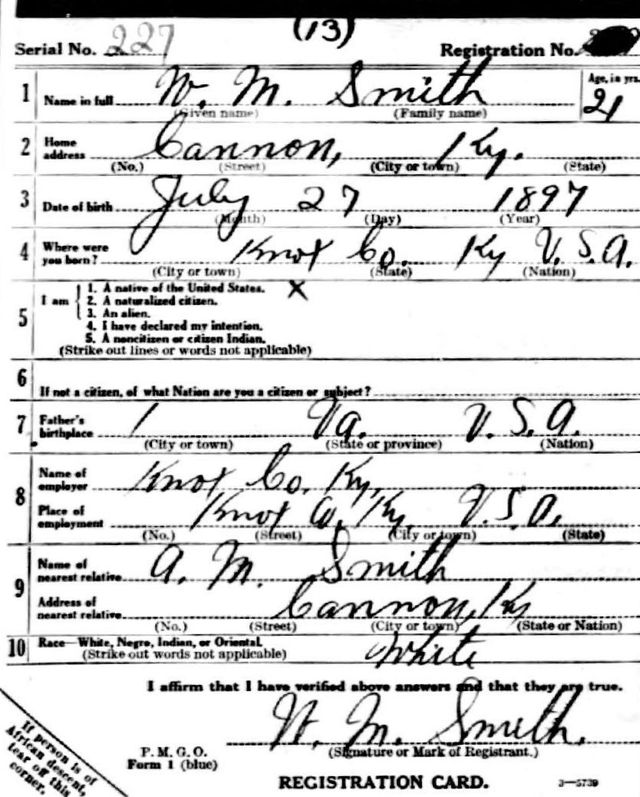 (13)
Serial No. 227 Registration No.
1 Name in full W. M. Smith Age, in yrs. 21
(Given name) (Family name)
2 Home address Cannon, Ky.
(No.) (Street) (City or town) (State)
3 Date of birth July 27 1897
(Month) (Day) (Year)
4 Where were you born? Knox Co. Ky U.S.A.
(City or town) (State) (Nation)
5 I am
1. A native of the United States. X
2. A naturalized citizen.
3. An alien.
4. I have declared my intention.
5. A noncitizen or citizen Indian.
(Strike out lines or words not applicable)
6 If not a citizen, of what Nation are you a citizen or subject?
7 Father's birthplace Va. U.S.A.
(City or town) (State or province) (Nation)
8 Name of employer Knox Co. Ky.
Place of employment Knox Co. Ky. U.S.A.
(No.) (Street) (City or town) (State)
9 Name of nearest relative A. M. Smith
Address of nearest relative Cannon, Ky
(No.) (Street) (City or town) (State or Nation)
10 Race—White, Negro, Indian, or Oriental.
(Strike out words not applicable) White
I affirm that I have verified above answers and that they are true.
W. M. Smith.
(Signature or Mark of Registrant.)
P. M. G. O.
Form 1 (blue)
REGISTRATION CARD. 3—5739
If person is of
African descent,
tear off this
corner.